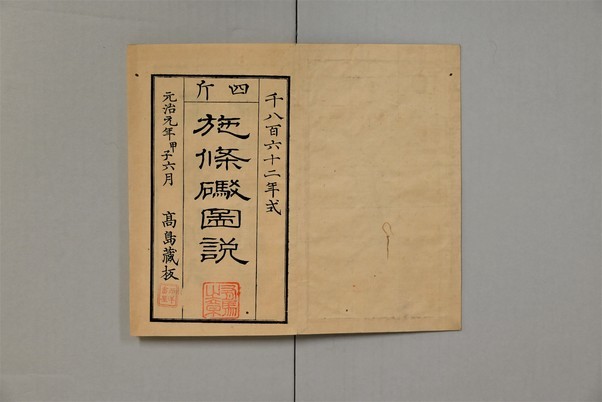 千八百六十二年式
四斤
施條礮圖説
元治元年甲子六月
高島藏板